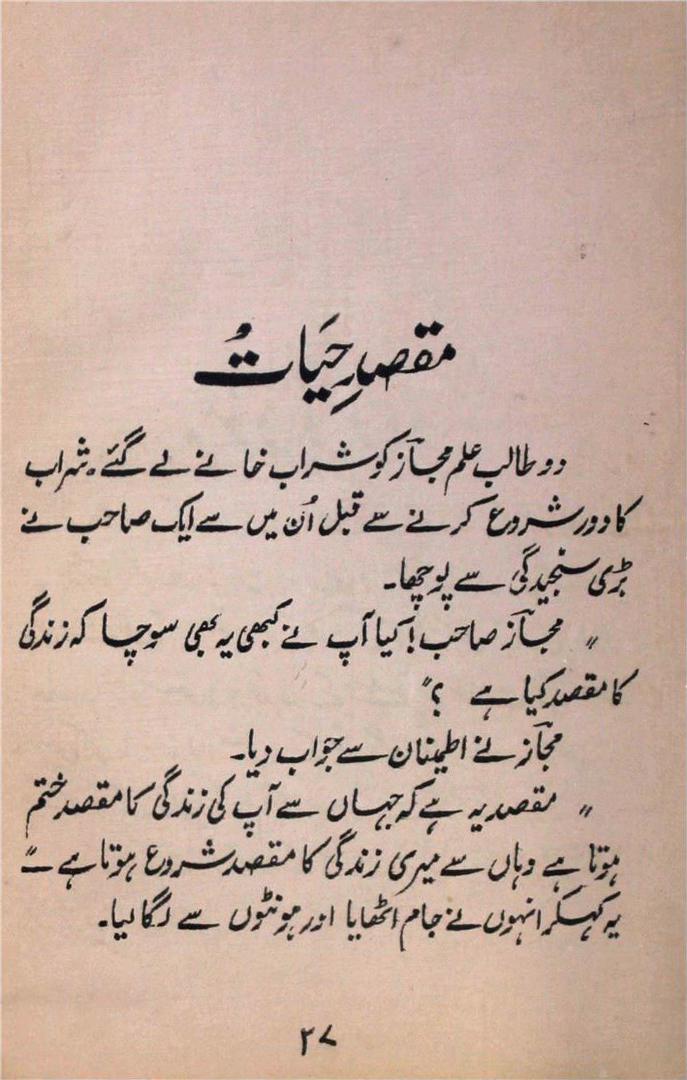 مقصدِ حیات
دو طالب علم مجاز کو شراب خانے لے گئے۔ شراب
کا دور شروع کرنے سے قبل اُن میں سے ایک صاحب نے
بڑی سنجیدگی سے پوچھا۔
"مجاز صاحب! کیا آپ نے کبھی یہ بھی سوچا کہ زندگی
کا مقصد کیا ہے ؟"
مجاز نے اطمینان سے جواب دیا۔
"مقصد یہ ہے کہ جہاں سے آپ کی زندگی کا مقصد ختم
ہوتا ہے وہاں سے میری زندگی کا مقصد شروع ہوتا ہے ــ"
یہ کہکر انہوں نے جام اٹھایا اور ہونٹوں سے لگا لیا۔
۲۷